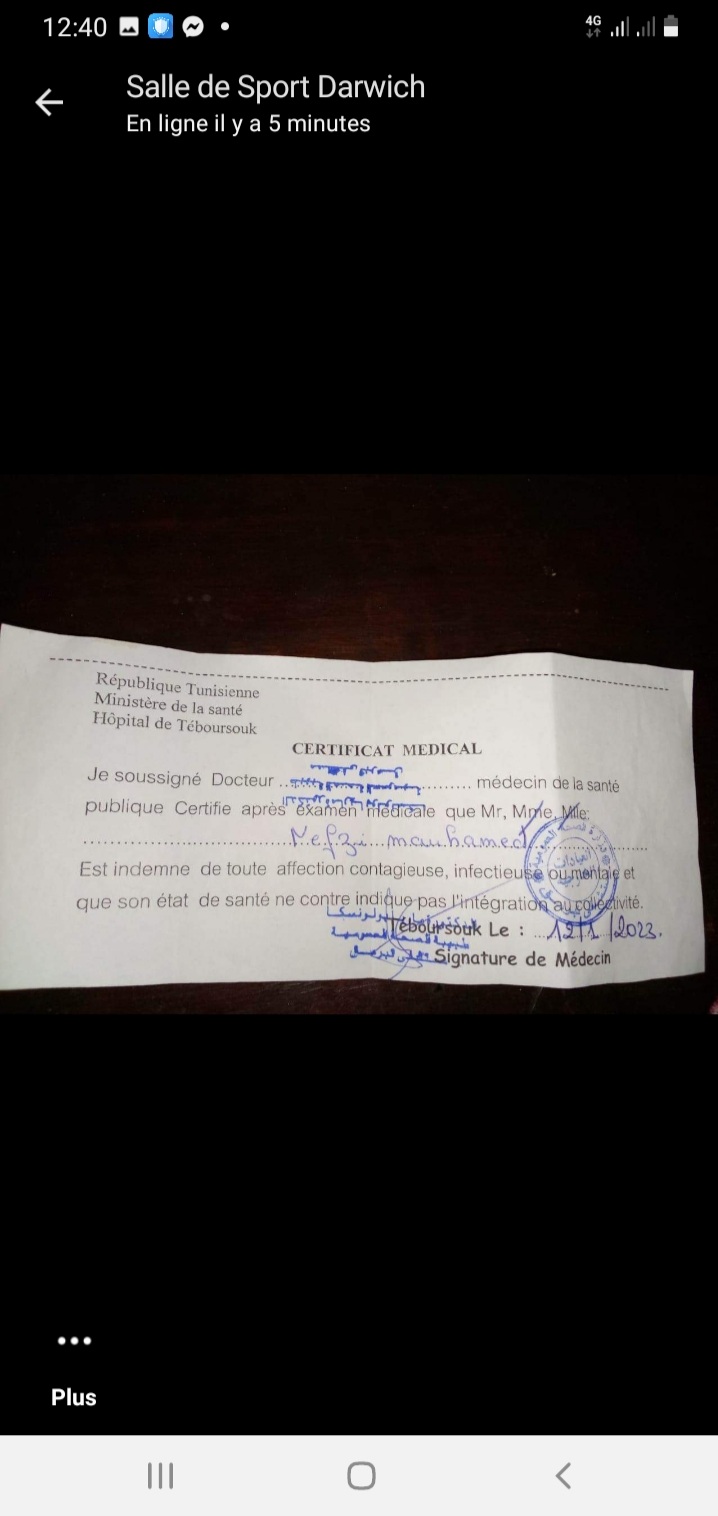 12:40
4G
Salle de Sport Darwich
En ligne il y a 5 minutes
République Tunisienne
Ministère de la santé
Hôpital de Téboursouk
CERTIFICAT MEDICAL
Je soussigné Docteur .................... médecin de la santé
publique Certifie après examen médicale que Mr, Mme, Mlle:
................................Nefzi mouhamed....................
Est indemne de toute affection contagieuse, infectieuse ou mentale et
que son état de santé ne contre indique pas l'intégration au collectivité.
Téboursouk Le : ...12/1/2023.
Signature de Médecin
Plus